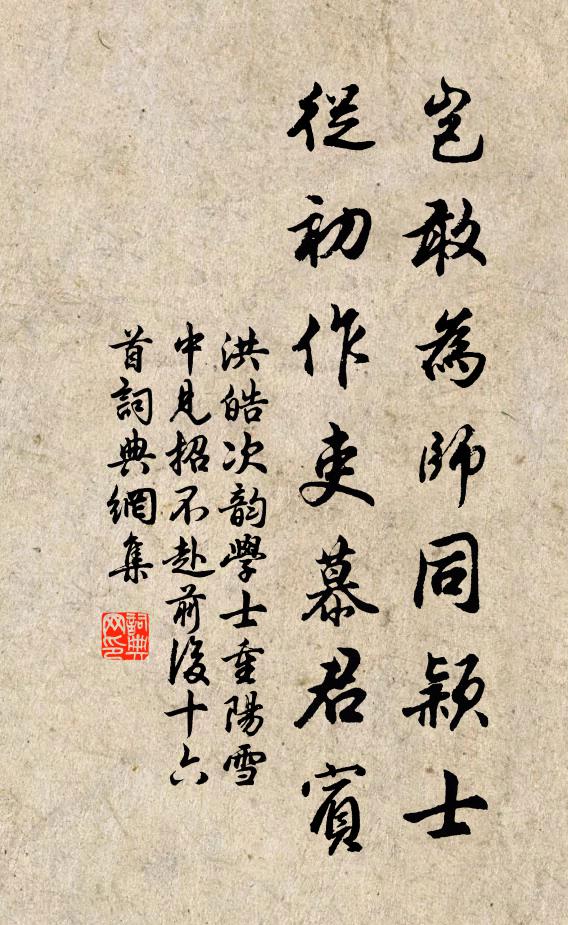 豈敢為師同穎士
從初作吏慕君賓
洪皓次韵學士重陽雪
中見招不赴前後十六
首詞典網集
詞典网印